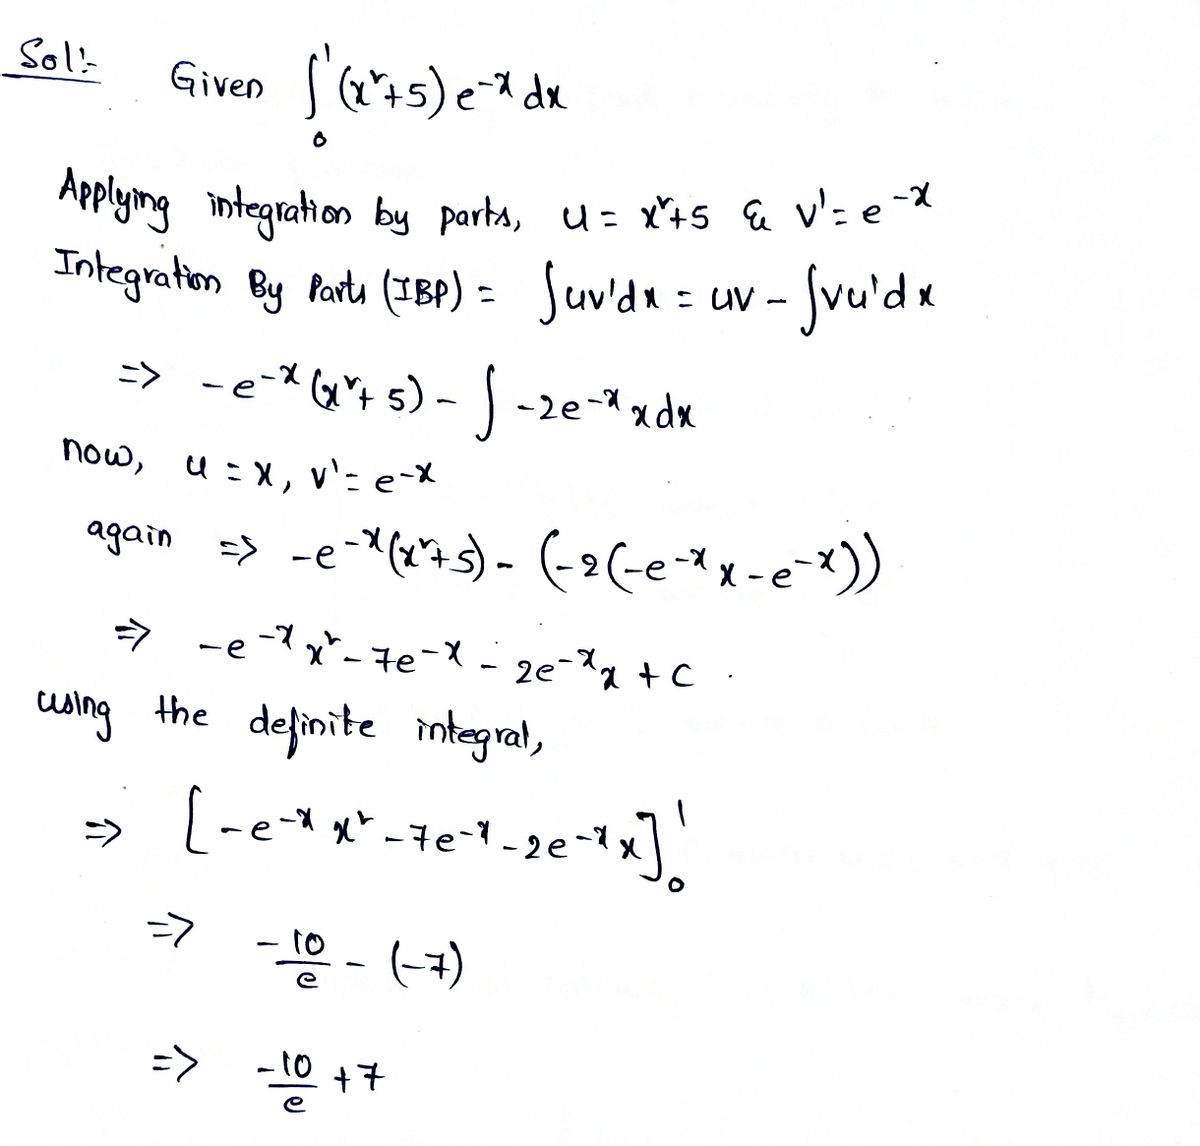 Sol:-
Given ∫₀¹ (x²+5) e^{-x} dx
Applying integration by parts, u = x²+5 & v' = e^{-x}
Integration By Parts (IBP) = ∫uv'dx = uv - ∫vu'dx
=> -e^{-x} (x²+5) - ∫ -2e^{-x} x dx
now, u = x, v' = e^{-x}
again => -e^{-x} (x²+5) - (-2(-e^{-x} x - e^{-x}))
=> -e^{-x} x² - 7e^{-x} - 2e^{-x} x + C
using the definite integral,
=> [-e^{-x} x² - 7e^{-x} - 2e^{-x} x]₀¹
=> -10/e - (-7)
=> -10/e + 7